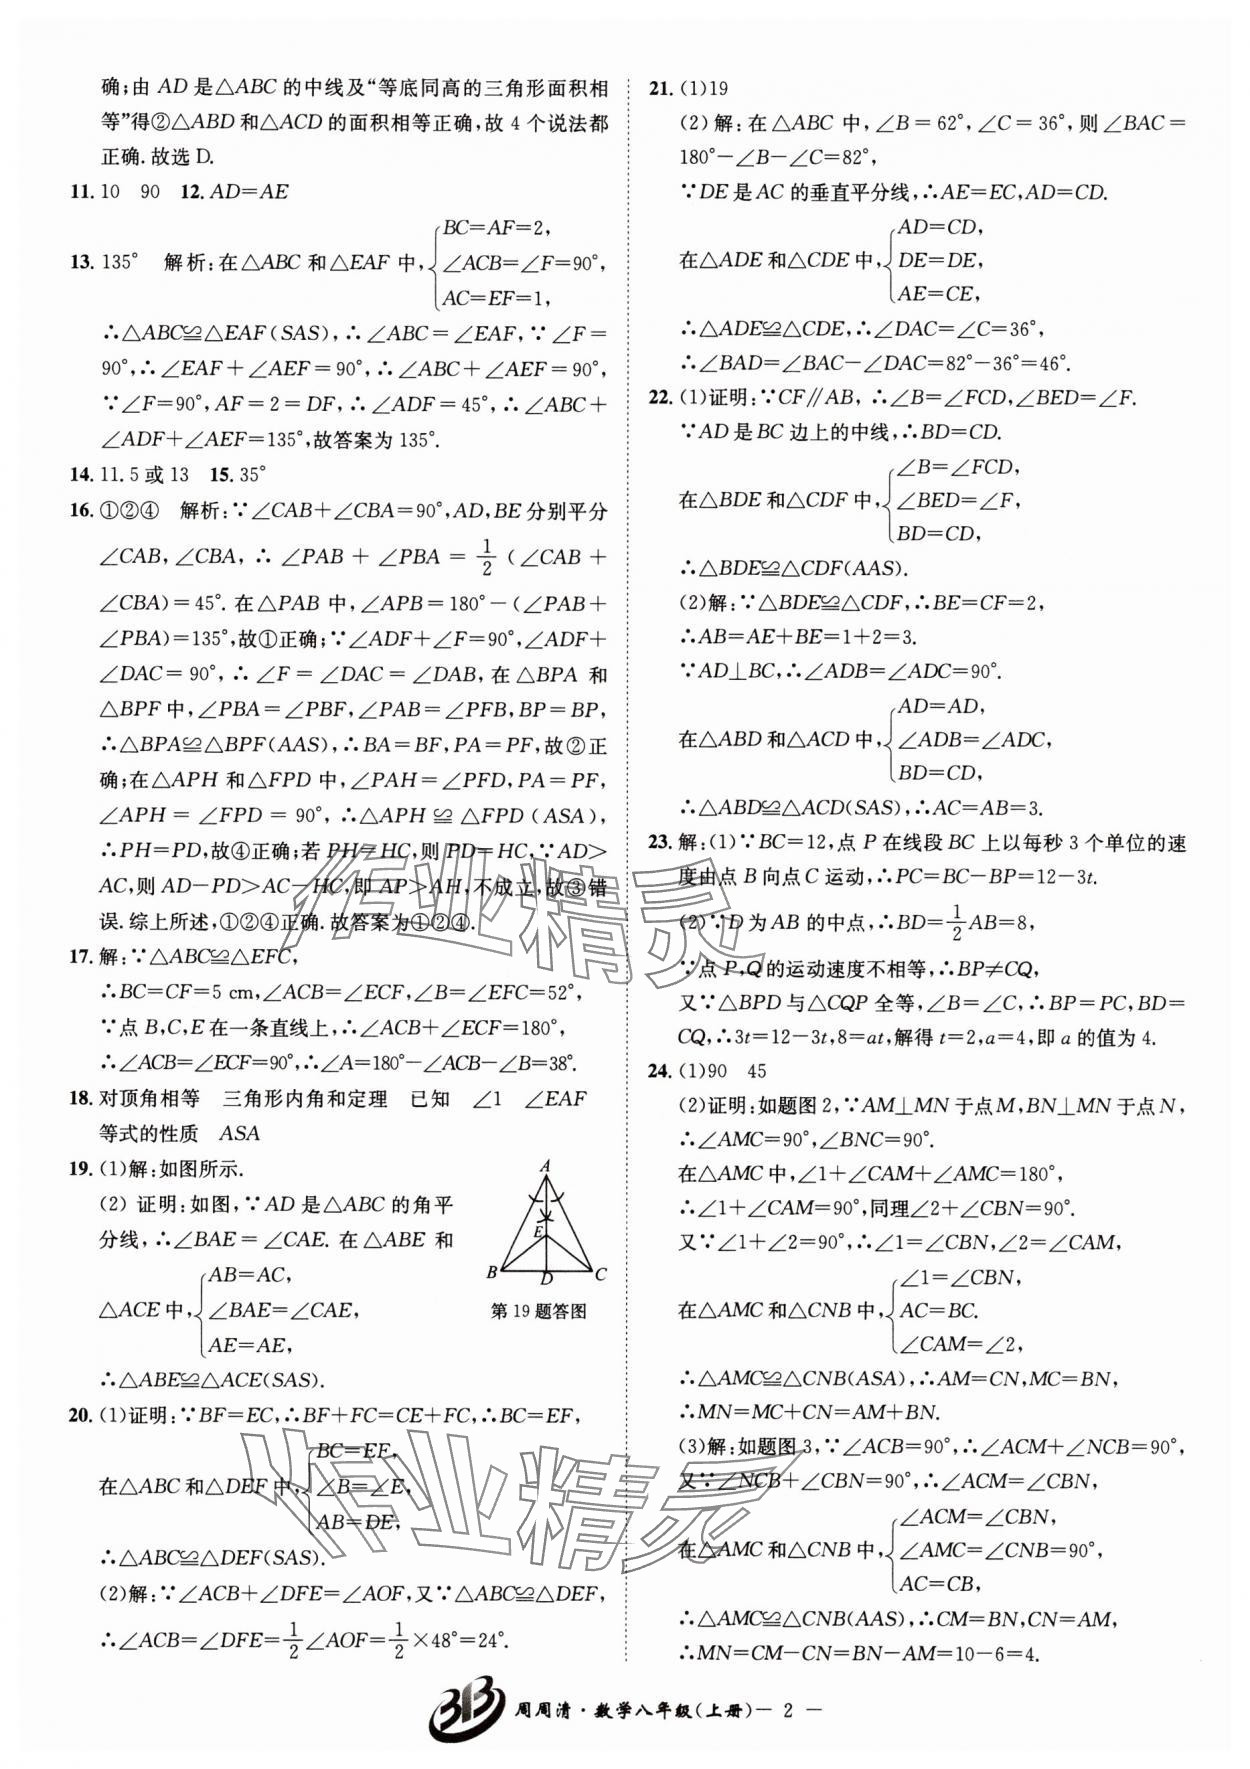 确;由 AD 是△ABC 的中线及“等底同高的三角形面积相
等”得②△ABD 和△ACD 的面积相等正确,故 4 个说法都
正确.故选 D.
11. 10 90 12. AD=AE
13. 135° 解析:在△ABC 和△EAF 中,{BC=AF=2,
∠ACB=∠F=90°,
AC=EF=1,
∴△ABC≌△EAF(SAS),∴∠ABC=∠EAF,∵∠F=
90°,∴∠EAF+∠AEF=90°,∴∠ABC+∠AEF=90°,
∵∠F=90°,AF=2=DF,∴∠ADF=45°,∴∠ABC+
∠ADF+∠AEF=135°,故答案为 135°.
14. 11.5 或 13 15. 35°
16. ①②④ 解析:∵∠CAB+∠CBA=90°,AD,BE 分别平分
∠CAB,∠CBA,∴∠PAB+∠PBA=1/2(∠CAB+
∠CBA)=45°.在△PAB 中,∠APB=180°-(∠PAB+
∠PBA)=135°,故①正确;∵∠ADF+∠F=90°,∠ADF+
∠DAC=90°,∴∠F=∠DAC=∠DAB,在△BPA 和
△BPF 中,∠PBA=∠PBF,∠PAB=∠PFB,BP=BP,
∴△BPA≌△BPF(AAS),∴BA=BF,PA=PF,故②正
确;在△APH 和△FPD 中,∠PAH=∠PFD,PA=PF,
∠APH=∠FPD=90°,∴△APH≌△FPD(ASA),
∴PH=PD,故④正确;若 PH=HC,则 PD=HC,∵AD>
AC,则 AD-PD>AC-HC,即 AP>AH,不成立,故③错
误.综上所述,①②④正确.故答案为①②④.
17. 解:∵△ABC≌△EFC,
∴BC=CF=5 cm,∠ACB=∠ECF,∠B=∠EFC=52°,
∵点 B,C,E 在一条直线上,∴∠ACB+∠ECF=180°,
∴∠ACB=∠ECF=90°,∴∠A=180°-∠ACB-∠B=38°.
18. 对顶角相等 三角形内角和定理 已知 ∠1 ∠EAF
等式的性质 ASA
19. (1)解:如图所示.
(2)证明:如图,∵AD 是△ABC 的角平
分线,∴∠BAE=∠CAE.在△ABE 和
△ACE 中,{AB=AC,
∠BAE=∠CAE,
AE=AE,
∴△ABE≌△ACE(SAS).
A
E
B D C
第 19 题答图
20. (1)证明:∵BF=EC,∴BF+FC=CE+FC,∴BC=EF,
在△ABC 和△DEF 中,{BC=EF,
∠B=∠E,
AB=DE,
∴△ABC≌△DEF(SAS).
(2)解:∵∠ACB+∠DFE=∠AOF,又∵△ABC≌△DEF,
∴∠ACB=∠DFE=1/2∠AOF=1/2×48°=24°.
21. (1)19
(2)解:在△ABC 中,∠B=62°,∠C=36°,则∠BAC=
180°-∠B-∠C=82°,
∵DE 是 AC 的垂直平分线,∴AE=EC,AD=CD.
在△ADE 和△CDE 中,{AD=CD,
DE=DE,
AE=CE,
∴△ADE≌△CDE,∴∠DAC=∠C=36°,
∴∠BAD=∠BAC-∠DAC=82°-36°=46°.
22. (1)证明:∵CF∥AB,∴∠B=∠FCD,∠BED=∠F.
∵AD 是 BC 边上的中线,∴BD=CD.
在△BDE 和△CDF 中,{∠B=∠FCD,
∠BED=∠F,
BD=CD,
∴△BDE≌△CDF(AAS).
(2)解:∵△BDE≌△CDF,∴BE=CF=2,
∴AB=AE+BE=1+2=3.
∵AD⊥BC,∴∠ADB=∠ADC=90°.
在△ABD 和△ACD 中,{AD=AD,
∠ADB=∠ADC,
BD=CD,
∴△ABD≌△ACD(SAS),∴AC=AB=3.
23. 解:(1)∵BC=12,点 P 在线段 BC 上以每秒 3 个单位的速
度由点 B 向点 C 运动,∴PC=BC-BP=12-3t.
(2)∵D 为 AB 的中点,∴BD=1/2AB=8,
∵点 P,Q 的运动速度不相等,∴BP≠CQ,
又∵△BPD 与△CQP 全等,∠B=∠C,∴BP=PC,BD=
CQ,∴3t=12-3t,8=at,解得 t=2,a=4,即 a 的值为 4.
24. (1)90 45
(2)证明:如题图 2,∵AM⊥MN 于点 M,BN⊥MN 于点 N,
∴∠AMC=90°,∠BNC=90°.
在△AMC 中,∠1+∠CAM+∠AMC=180°,
∴∠1+∠CAM=90°,同理∠2+∠CBN=90°.
又∵∠1+∠2=90°,∴∠1=∠CBN,∠2=∠CAM,
在△AMC 和△CNB 中,{∠1=∠CBN,
AC=BC.
∠CAM=∠2,
∴△AMC≌△CNB(ASA),∴AM=CN,MC=BN,
∴MN=MC+CN=AM+BN.
(3)解:如题图 3,∵∠ACB=90°,∴∠ACM+∠NCB=90°,
又∵∠NCB+∠CBN=90°,∴∠ACM=∠CBN,
在△AMC 和△CNB 中,{∠ACM=∠CBN,
∠AMC=∠CNB=90°,
AC=CB,
∴△AMC≌△CNB(AAS),∴CM=BN,CN=AM,
∴MN=CM-CN=BN-AM=10-6=4.
作业精灵
作业精灵
周周清·数学八年级(上册)— 2 —